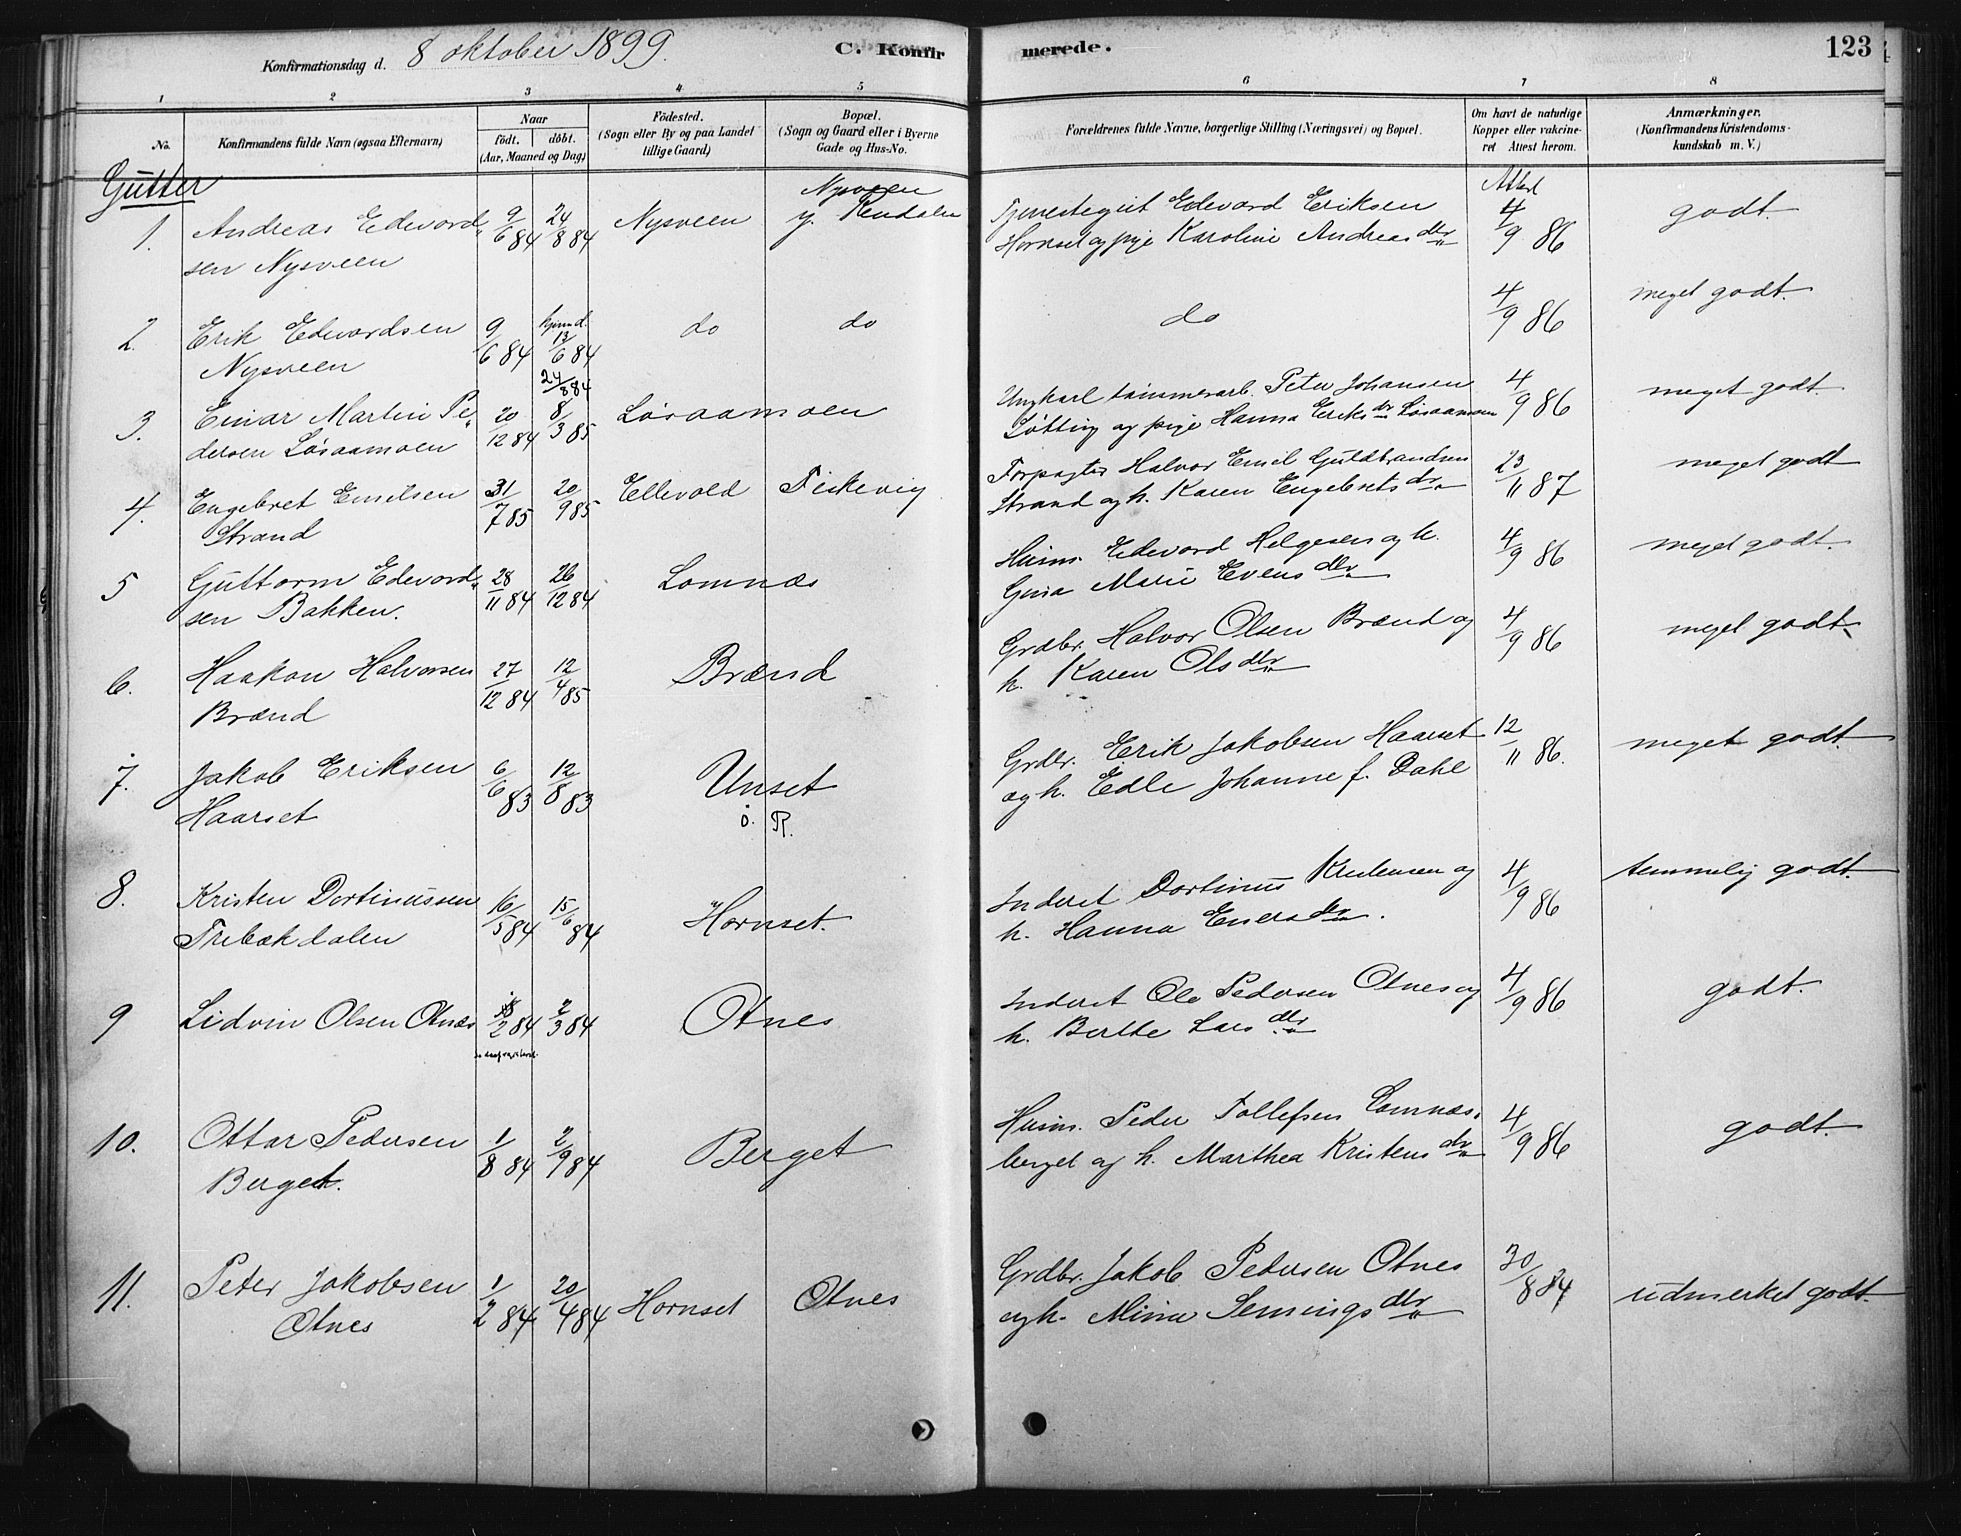 Konfirmationsdag d. 8 oktober 1899.
C. Konfir merede. 123
1 2 3 4 5 6 7 8
No. Konfirmandens fulde Navn (ogsaa Efternavn) Naar født. døbt. (Aar, Maaned og Dag) Födested. (Sogn eller By og paa Landet lillige Gaard) Bopæl. (Sogn og Gaard eller i Byerne Gade og Hus-No. Forældrenes fulde Navne, borgerlige Stilling (Næringsvei) og Bopæl. Om havt de naturlige Kopper eller vakcineret Attest herom. Anmærkninger. (Konfirmandens Kristendomskundskab m. V.)
Gutter
1. Andreas Edvard" 9/6 84 24/8 84 Nysveen Nysveen Tjenestegut Edvard Eriksen Attest 4/9 86 godt.
sen Nysveen y. Rendalen Hornset og pige Karoline Andreasdtr
2. Erik Edvardsen 9/6 84 hjemmd. 13/6 84 do do do 4/9 86 meget godt.
Nysveen 24/8 84
3. Einar Martin Pe" 20/12 84 8/3 85 Løsaamoen Ungkarl tømmerarb. Peter Johansen 4/9 86 meget godt.
dersen Løsaamoen Løtting og pige Hanna Eriksdtr Løsaamoen
4. Engebret Emilsen 31/7 85 20/9 85 Ellevold Fiskevig Forpagter Halvor Emil Guldbrandsen 23/11 87 meget godt
Strand Strand og h. Karen Engebretsdtr
5 Guttorm Edvard" 28/11 84 26/12 84 Lomnæs Husm. Edvard Helgesen og h. 4/9 86 meget godt.
sen Bakken. Gina Marie Evensdtr
6. Haakon Halvorsen 27/12 84 12/4 85 Brænd Grdbr. Halvor Olsen Brænd og 4/9 86 meget godt.
Brænd h. Karen Olsdtr
7. Jakob Eriksen 6/6 83 12/8 83 Unset Grdbr. Erik Jakobsen Haarset 12/11 86. meget godt.
Haarset ö. R. og h. Edle Johanne f. Dahl
8. Kristen Dortinussen 16/5 84 15/6 84 Hornset. Inderst Dortinus Kristensen og 4/9 86 temmelig godt.
Trebækdalen h. Hanna Enersdtr.
9 Lidvin Olsen Otnæs 2 84 2/3 84 Otnes Inderst Ole Pedersen Otnes og 4/9 86 godt.
h. Berthe Larsdtr
10. Ottar Pedersen 1/8 84 2/9 84 Berget Husm. Peder Tollefsen Lomnæs" 4/9 86 godt.
Berget. berget og h. Marthea Kristensdtr
11. Peter Jakobsen 1/2 84 20/4 84 Hornset Otnes Grdbr. Jakob Pedersen Otnes 30/8 84 udmerket godt.
Otnes og h. Mina Semmingsdtr